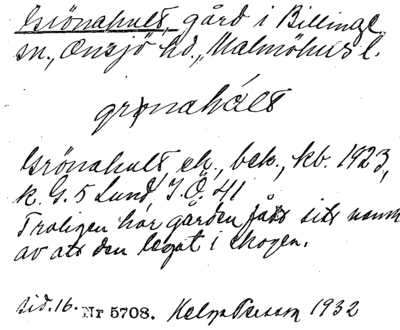 Grönahult, gård i Billinge
sn., Onsjö hd., Malmöhus l.
grönahált
Grönahult, ek., bek., kb. 1923,
k. G. 5 Lund, J. Ö. 41
Troligen har gården fått sitt namn
av att den legat i skogen.
sid. 16. Nr 5708. Persson 1932